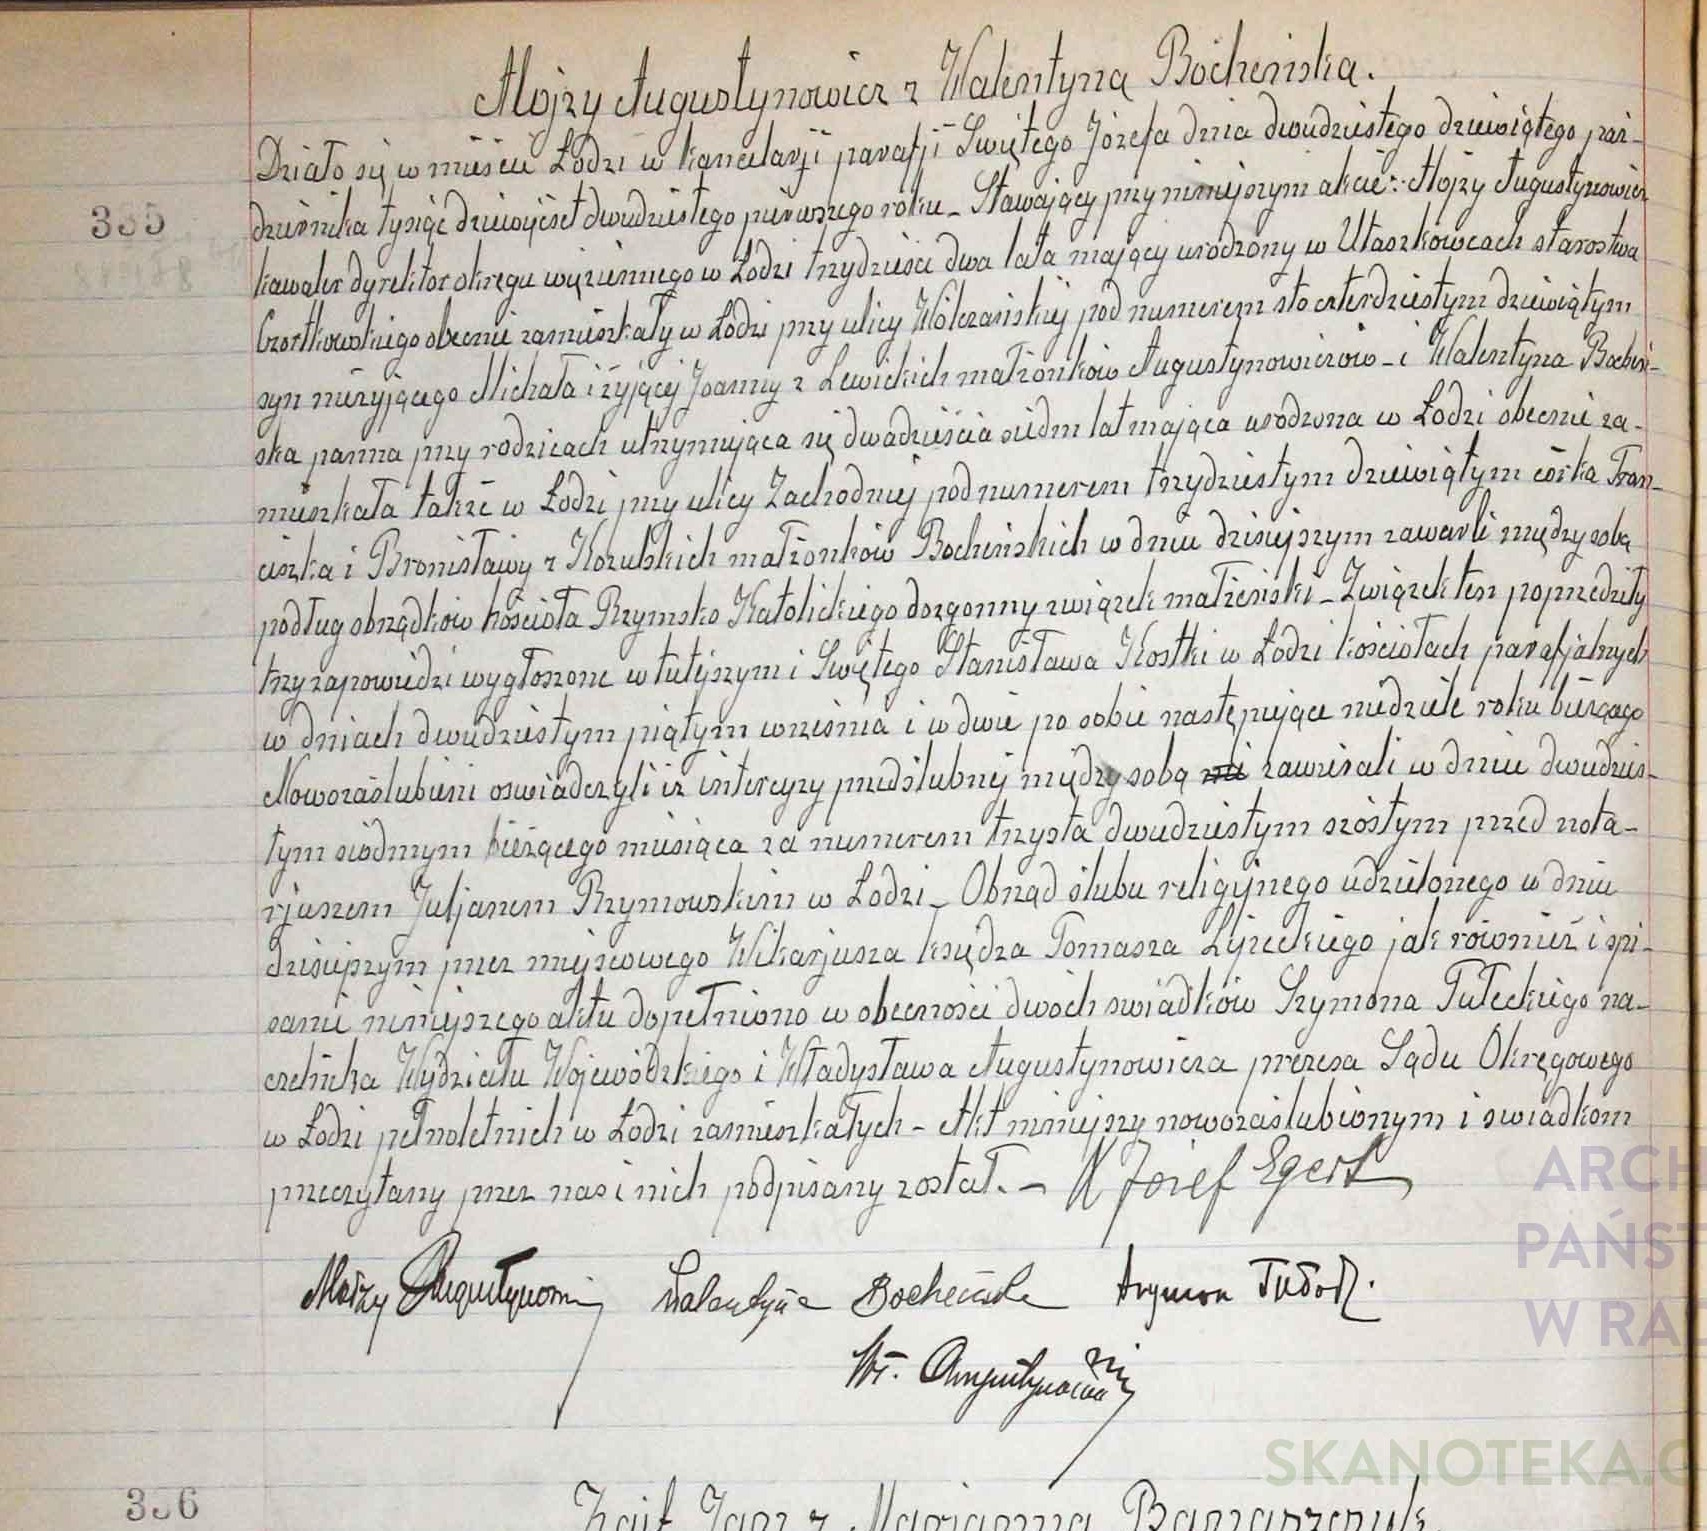 Alojzy Augustynowicz z Walentyna Bocheńska.
Działo się w mieście Łodzi w kancelarji parafji Świętego Józefa dnia dwudziestego dziewiątego paź-
335
dziernika tysiąc dziewięćset dwudziestego pierwszego roku – Stawający przy niniejszym akcie: Alojzy Augustynowicz
kawaler dyrektor okręgu więziennego w Łodzi trzydzieści dwa lata mający urodzony w Ułaszkowcach starostwa
Czortkowskiego obecnie zamieszkały w Łodzi przy ulicy Wólczańskiej pod numerem sto czterdziestym dziewiątym
syn nieżyjącego Michała i żyjącej Joanny z Lewickich małżonków Augustynowiczów – i Walentyna Bocheń-
ska panna przy rodzicach utrzymująca się dwadzieścia siedm lat mająca urodzona w Łodzi obecnie za-
mieszkała także w Łodzi przy ulicy Zachodniej pod numerem trzydziestym dziewiątym córka Fran-
ciszka i Bronisławy z Kozubskich małżonków Bocheńskich w dniu dzisiejszym zawarli między sobą
podług obrządków kościoła Rzymsko Katolickiego dozgonny związek małżeński – Związek ten poprzedziły
trzy zapowiedzi wygłoszone w tutejszym i Świętego Stanisława Kostki w Łodzi kościołach parafjalnych
w dniach dwudziestym piątym września i w dwie po sobie następujące niedziele roku bieżącego
Nowozaślubieni oswiadczyli iż intercyzy przedślubnej między sobą nie zawierali w dniu dwudzies-
tym siódmym bieżącego miesiąca za numerem trzysta dwudziestym szóstym przed nota-
rjuszem Juljanem Rzymowskim w Łodzi – Obrząd ślubu religijnego udzielonego w dniu
dzisiejszym przez miejscowego Wikarjusza księdza Tomasza Lipeckiego jak również i spi-
sanie niniejszego aktu dopełniono w obecności dwóch swiadków Szymona Tułeckiego na-
czelnika Wydziału Wojewódzkiego i Władysława Augustynowicza prezesa Sądu Okręgowego
w Łodzi pełnoletnich w Łodzi zamieszkałych – Akt niniejszy nowozaślubionym i swiadkom
przeczytany przez nas i nich podpisany został. – X Józef Egert
Alojzy Augustynowicz Walentyna Bocheńska Szymon
Wł. Augustynowicz
ARCH
PAŃST
W RA
SKANOTEKA.G
336
Jan z Marianna